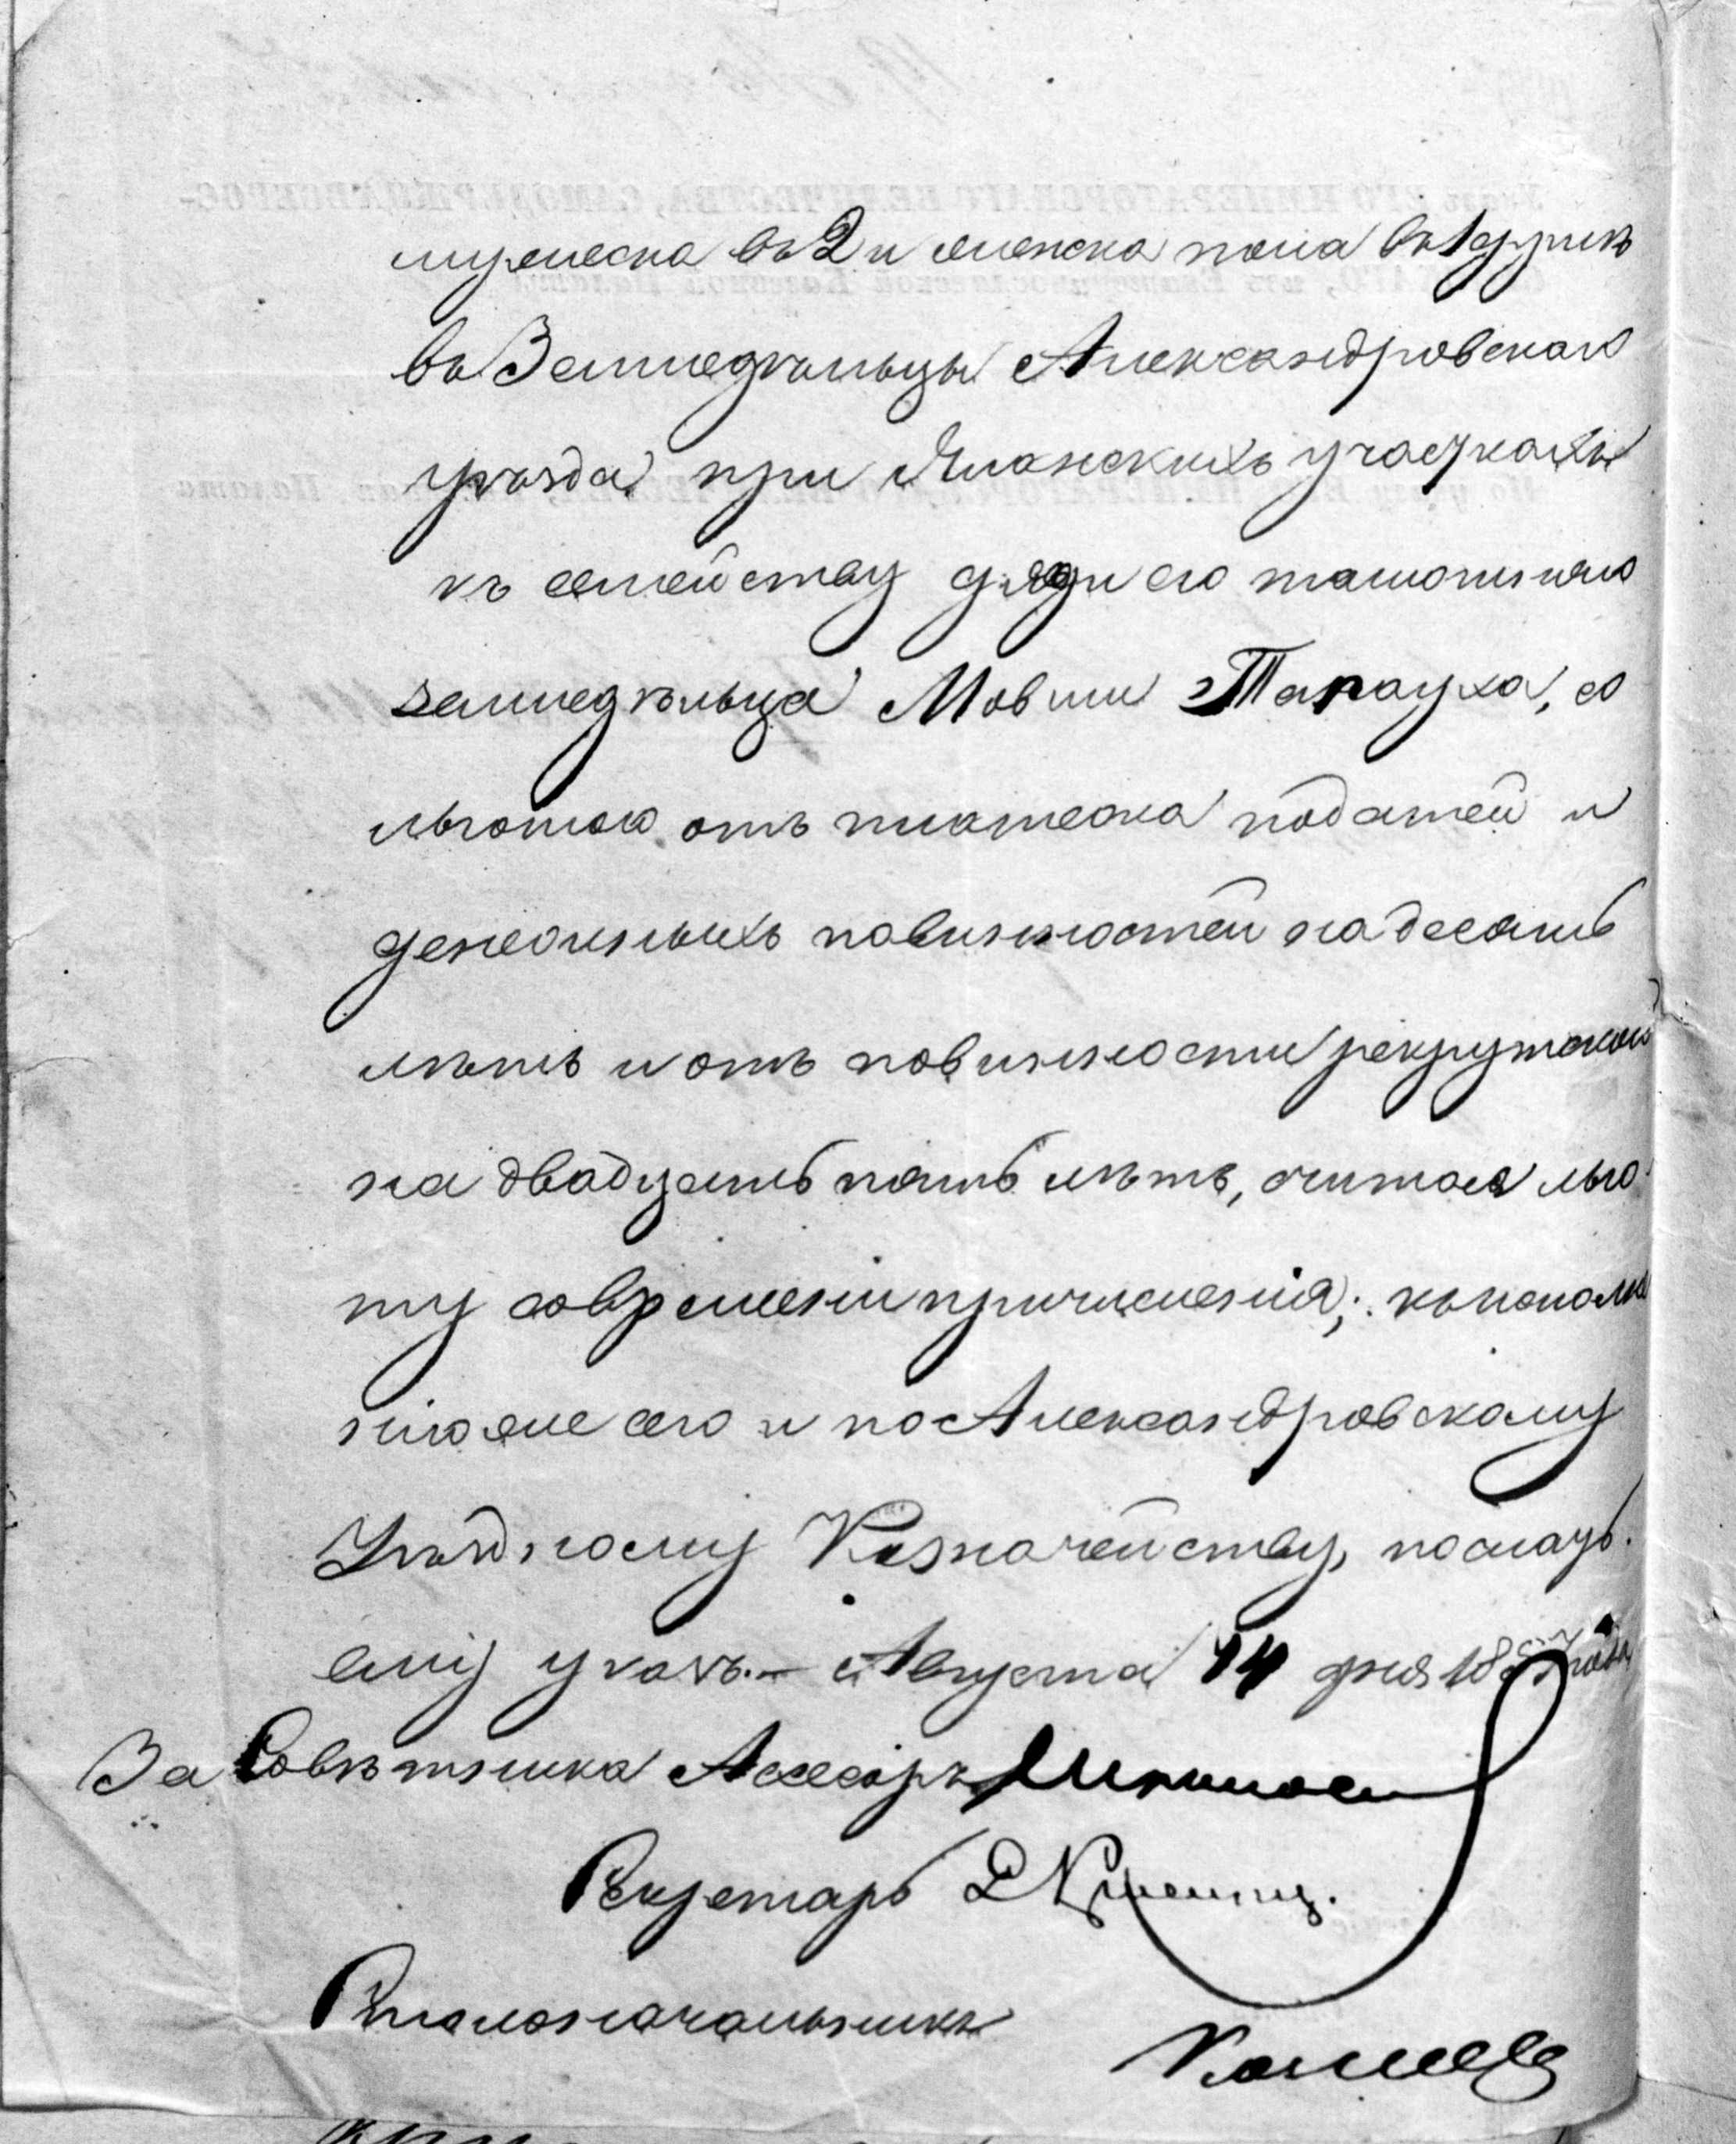 мужеска въ 2 и женска пола въ 1 душѣ
въ Земледѣльцы Александровскаго
уѣзда при участкахъ
къ семейству дяди его тамошняго
земледѣльца Мовши Тарауха, со
льготою отъ платежа податей и
денежныхъ повинностей на десять
лѣтъ и отъ повинности рекрутской
на двадцать пять лѣтъ, считая льго-
ту со времени причисленія; къ исполне
нію же сего и по Александровскому
Уѣздному Казначейству, послать
ему указъ. – Августа 14 дня 1857 года
За Совѣтника Асесоръ
Секретарь
Столоначальникъ